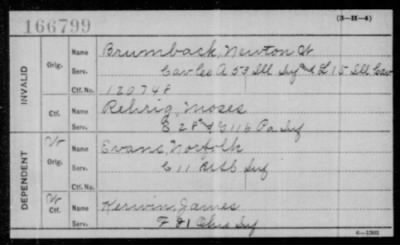 166799
(3-H-4)
INVALID
Orig.
Name Brumback, Newton H
Serv. Cav Co A 53 Ill Inf & L 15 Ill Cav
Ctf. No. 120748
Ctf.
Name Rehrig, Moses
Serv. E 28" & G 116 Pa Inf
DEPENDENT
Wo Orig.
Name Evans, Norfolk
Serv. C 11 Inf
Ctf. No.
Wo Ctf.
Name Kerwin, James
Serv. F 81 Ohio Inf